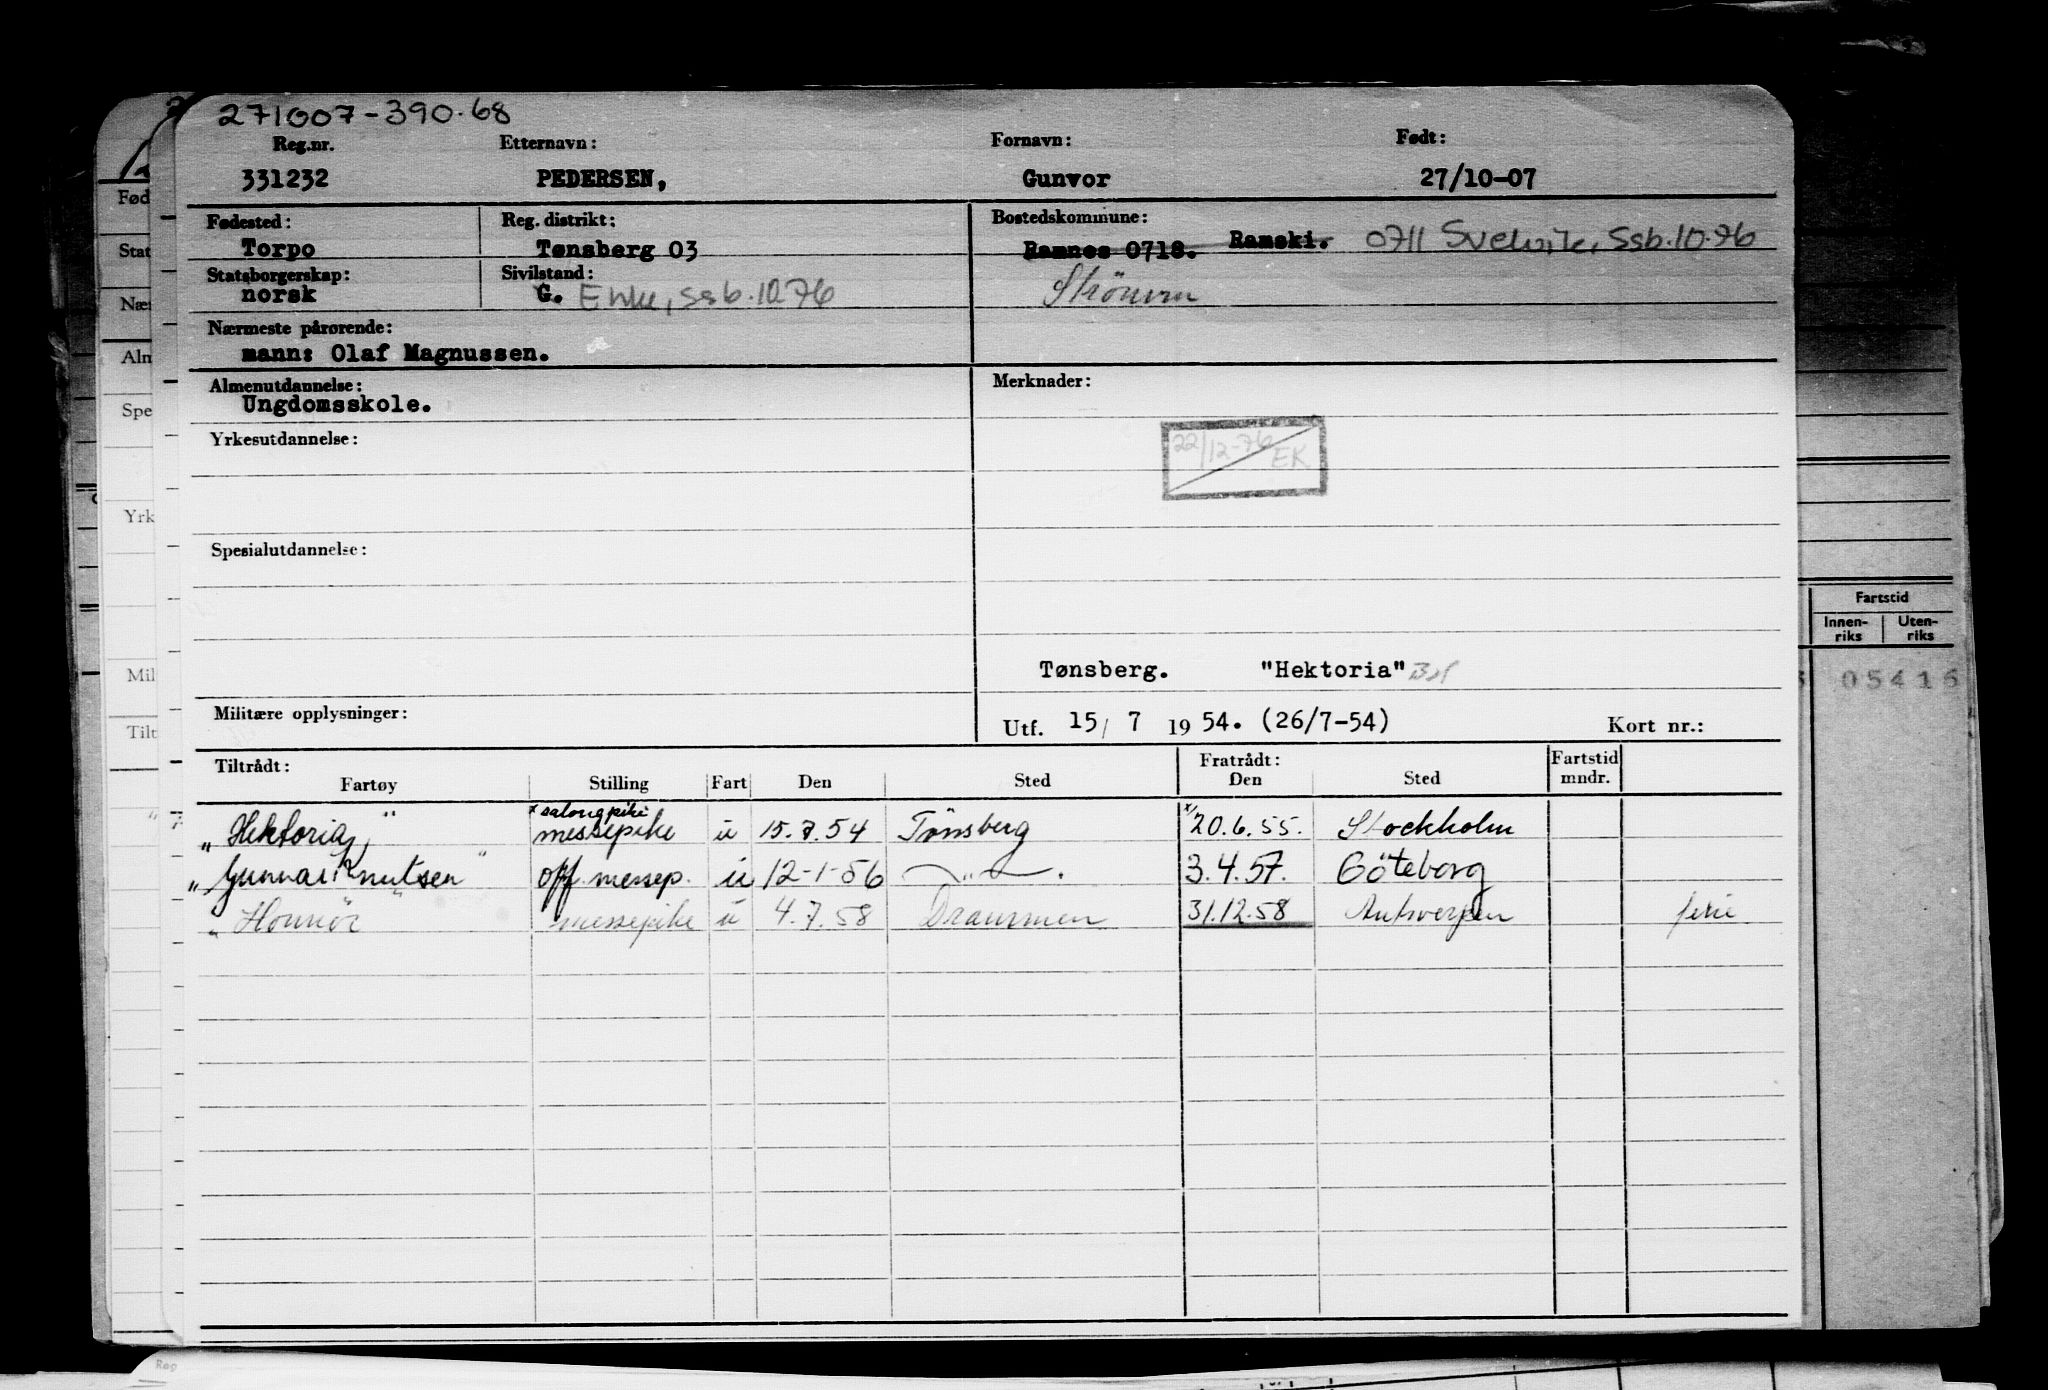 271007-390.68
Reg.nr. Etternavn: Fornavn: Født:
331232 PEDERSEN, Gunvor 27/10-07
Fødested: Reg. distrikt: Bostedskommune:
Torpo Tønsberg 03 Ramnes 0718. Ramski. 0711 Svelvik, ssb.10.76
Statsborgerskap: Sivilstand:
norsk G. Enke, ssb.10.76
Nærmeste pårørende:
mann: Olaf Magnussen.
Almenutdannelse: Merknader:
Ungdomsskole.
22/12-76 EK
Yrkesutdannelse:
Spesialutdannelse:
Tønsberg. "Hektoria"
Militære opplysninger: Utf. 15/ 7 1954. (26/7-54) Kort nr.:
Tiltrådt: Fratrådt: Fartstid
Fartøy Stilling Fart Den Sted Den Sted mndr.
x salongpike
"Hektoria" messepike u 15.7.54 Tönsberg x/20.6.55. Stockholm
"Gunnar Knutsen" off. messep. u 12-1-56 —"— . 3.4.57. Göteborg
"Honnör" messepike u 4.7.58 Drammen 31.12.58 Antwerpen ferie
Fød
Stat
Næ
Aln
Spe
Yrk
Mil
Tilt
Fartstid
Innen-riks Uten-riks
05416
Reg